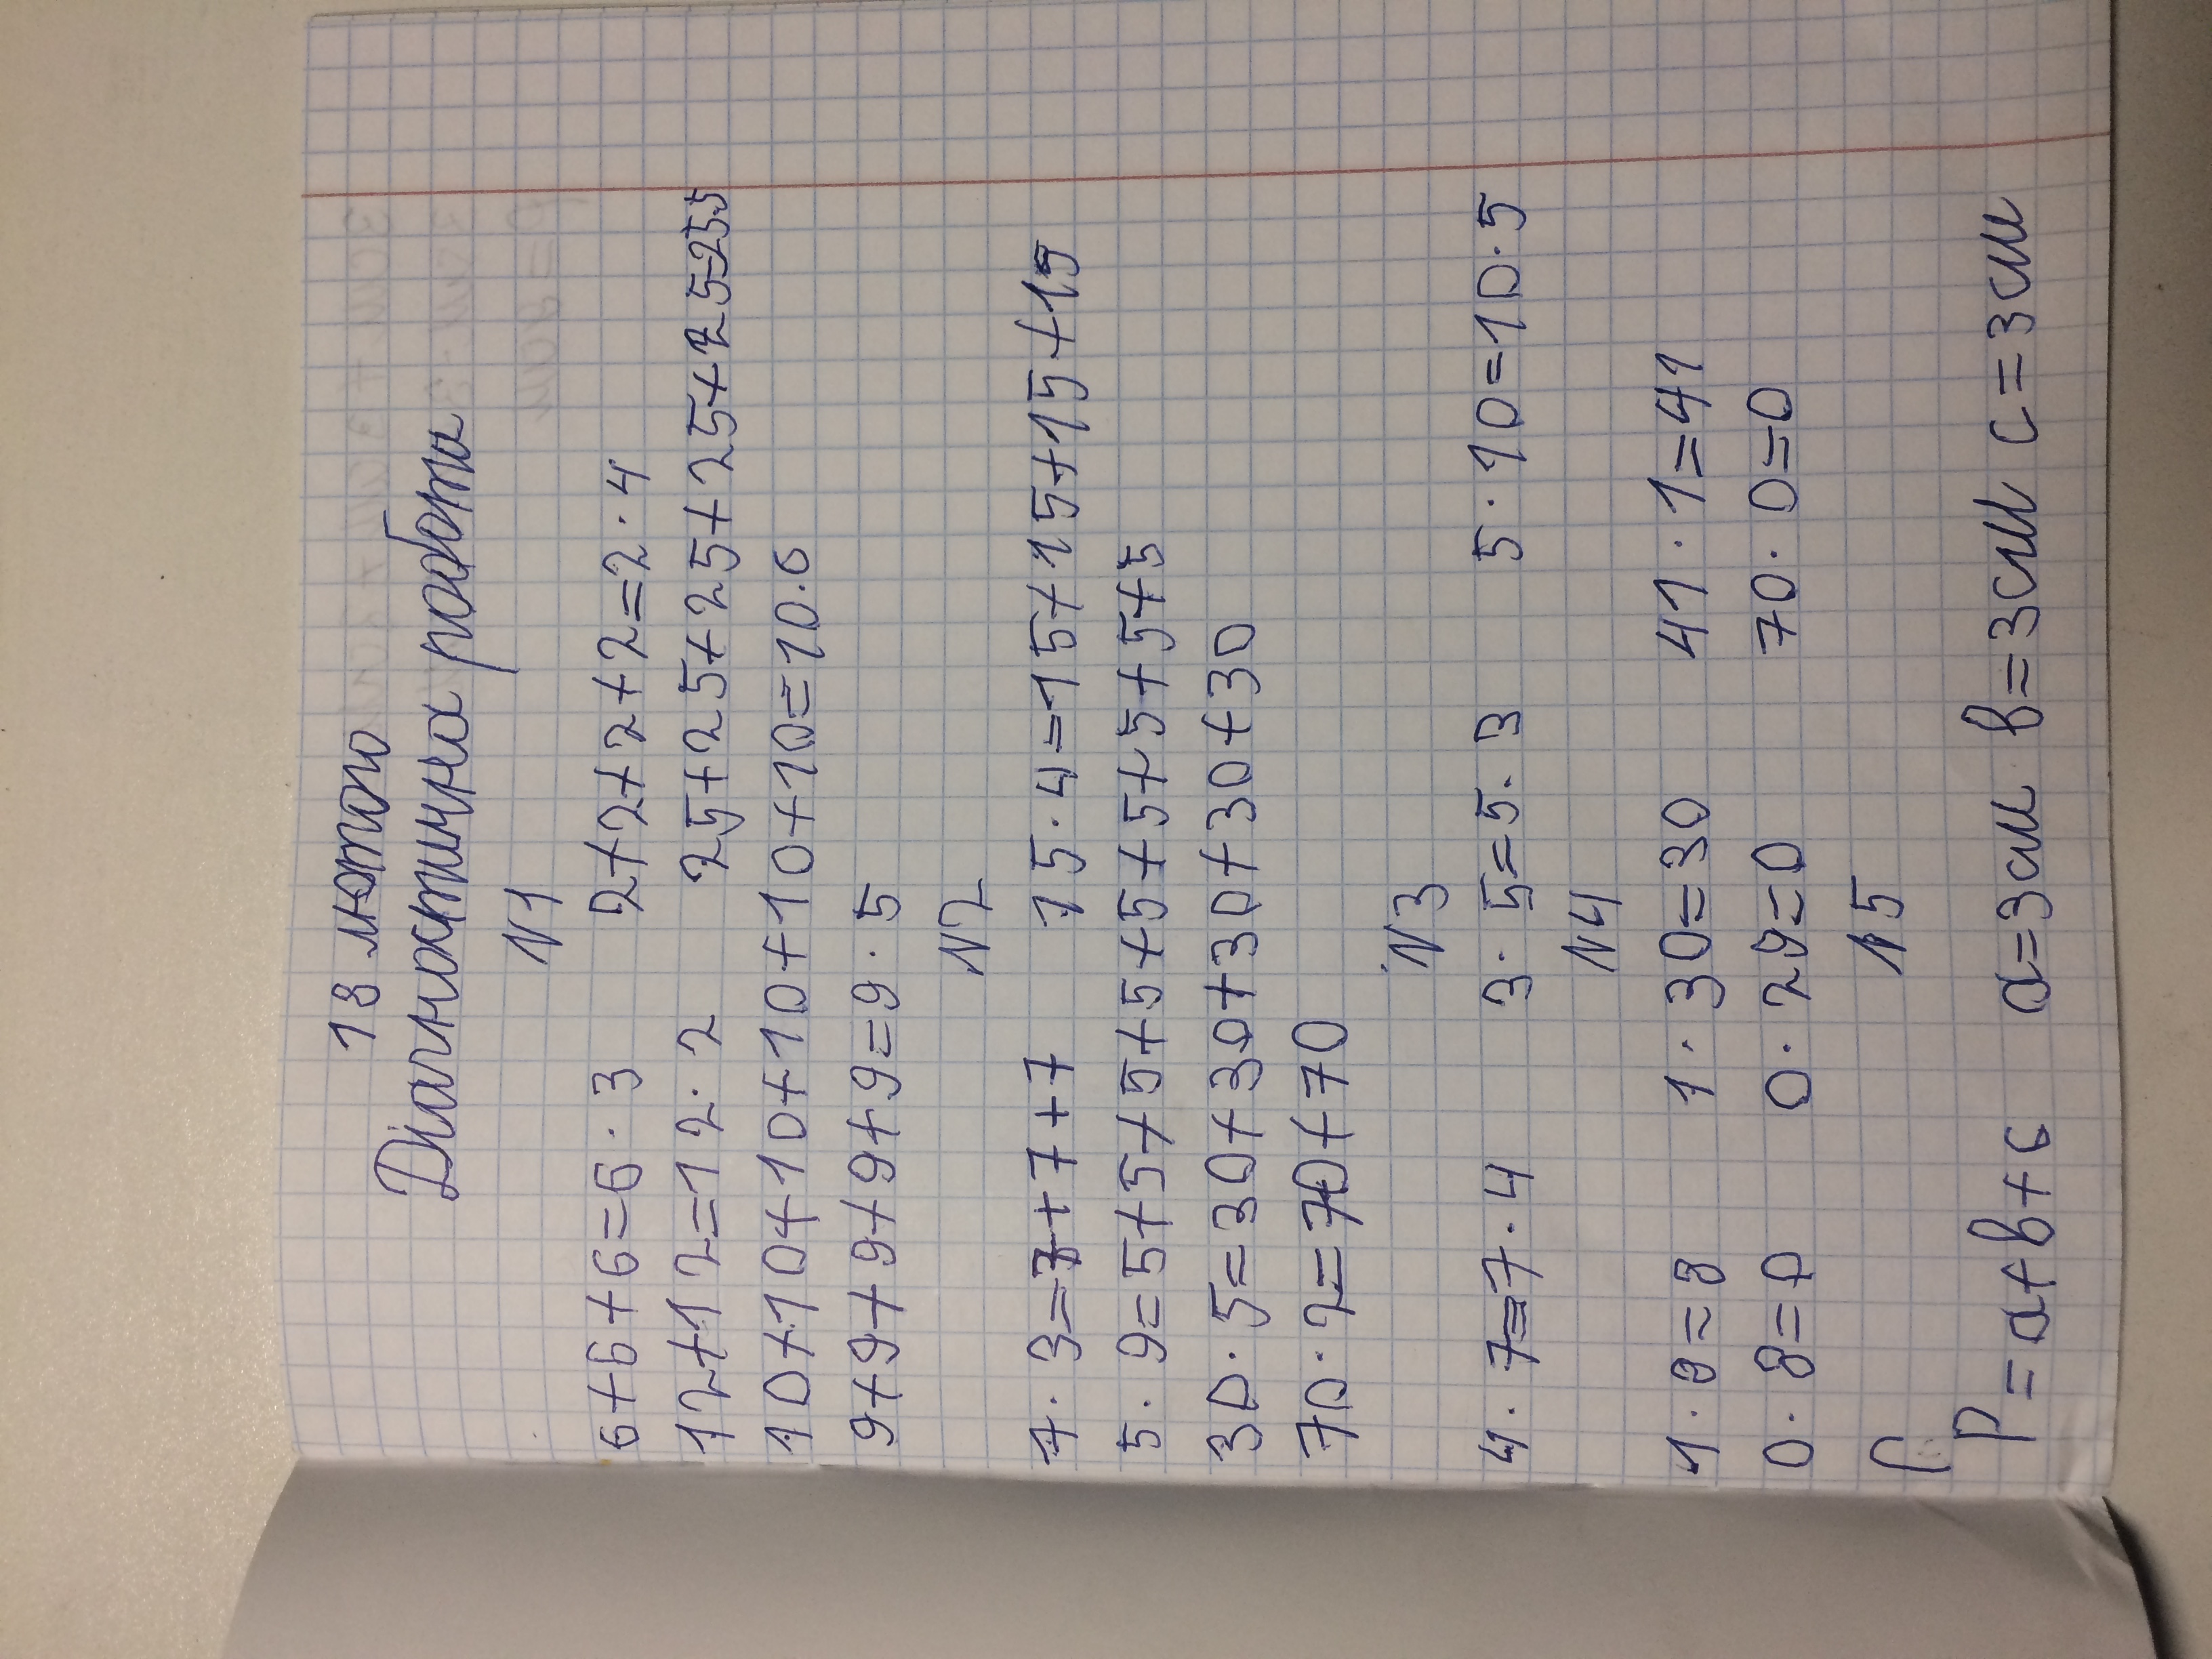 18 лютого
Діагностична робота
N1
6+6+6=6·3 2+2+2+2=2·4
12+12=12·2 25+25+25+25+25+25=25·5
10+10+10+10+10+10+10=10·6
9+9+9+9+9=9·5
N2
7·3=7+7+7 15·4=15+15+15+15+15
5·9=5+5+5+5+5+5+5+5+5+5
30·5=30+30+30+30+30+30
70·2=70+70
N3
4·7=7·4 3·5=5·3 5·10=10·5
N4
1·8=8 1·30=30 41·1=41
0·8=0 0·29=0 70·0=0
N5
P=a+b+c a=3см b=3см c=3см